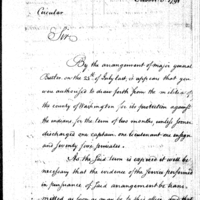 Circular
Sir
By the arrangement of major general
Butler on the 23d of July last, it appears that you
was authorised to draw forth from the militia of
the county of Washington for its protection against
the indians for the term of two months unless sooner
discharged one captain one lieutenant one ensign
and seventy five privates.
As the said term is expired it will be
necessary that the evidence of the service performed
in pursuance of said arrangement be trans-
mitted as soon as may be to this office, and that